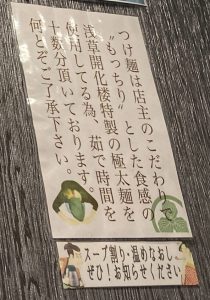 つけ麺は店主のこだわりで
〝もっちり〟とした食感の
浅草開化楼特製の極太麺を
使用してる為、茹で時間を
十数分頂いております。
何とぞご了承下さい。
スープ割り・温めなおし
ぜひ!お知らせください